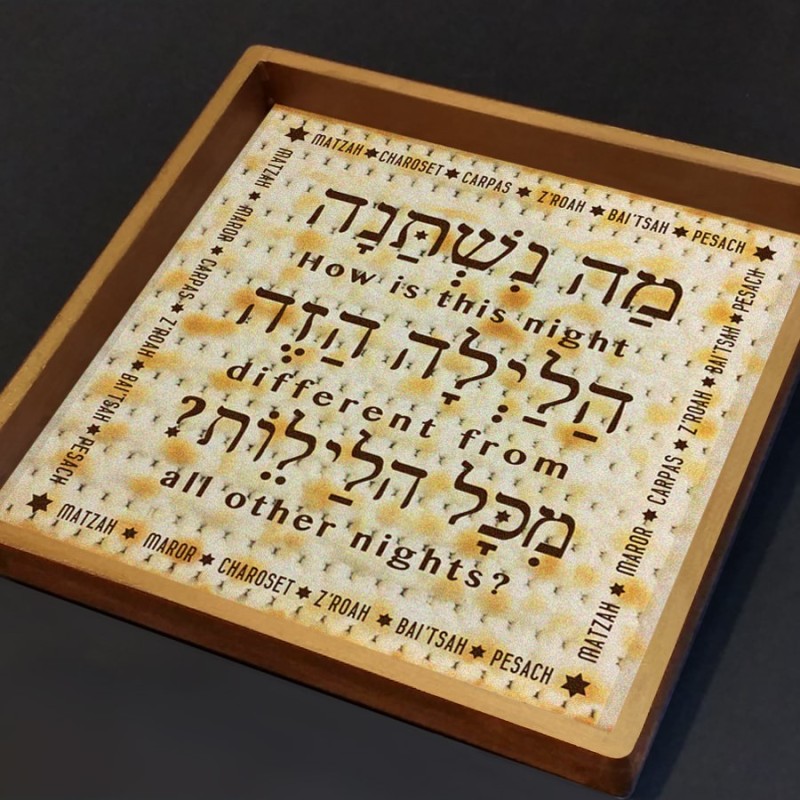 MATZAH ★ CHAROSET ★ CARPAS ★ Z'ROAH ★ BAI'TSAH ★ PESACH
MATZAH ★ MAROR ★ CARPAS ★ Z'ROAH ★ BAI'TSAH ★ PESACH
מַה נִשְׁתַּנָה
How is this night
הַלַיְלָה הַזֶה
different from
מִכָּל הלַילֵוֹת?
all other nights?
MATZAH ★ MAROR ★ CARPAS ★ Z'ROAH ★ BAI'TSAH ★ PESACH
MATZAH ★ MAROR ★ CHAROSET ★ Z'ROAH ★ BAI'TSAH ★ PESACH